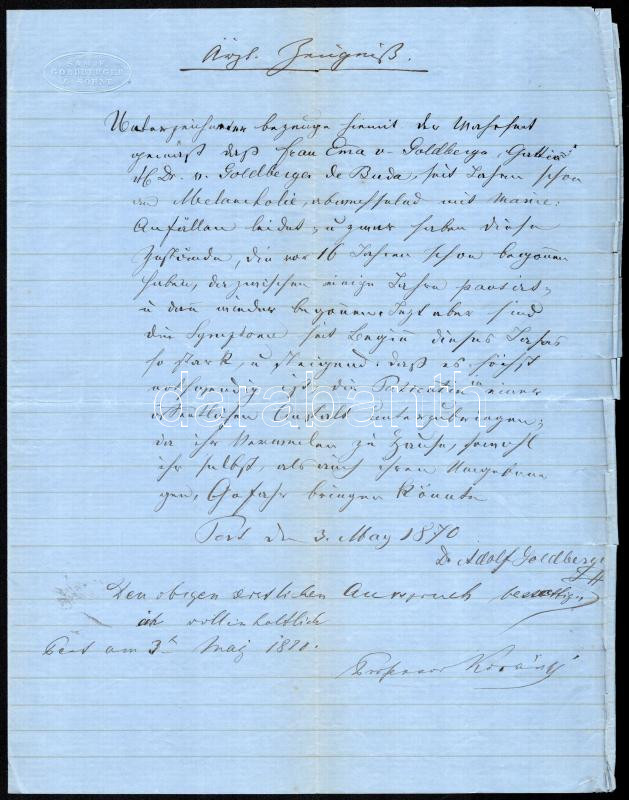 SAML. F.
GOLDBERGER
& SÖHNE
Ärztl. Zeugniß.
Unterzeichneter bezeuge hiemit der Wahrheit
gemäß daß Frau Ema v. Goldberger, Gattin
des Dr. v. Goldberger de Buda, seit Jahren schon
an Melancholie, abwechselnd mit Manie-
Anfällen leidet, u zwar haben diese
Zustände, die vor 16 Jahren schon begonnen
haben, dazwischen einige Jahre pausirt,
u dann wieder begonnen. Jezt aber sind
die Symptome seit Beginn dieses Jahres
so stark, u steigend, daß es höchst
nothwendig ist die Patientin in einer
öffentlichen Anstalt unterzubringen;
da ihr Verweilen zu Hause, sowohl
ihr selbst, als auch ihren Umgebun
gen, Gefahr bringen könnte
Pest den 3. May 1870
Dr Adolf Goldberger
Den obigen ärztlichen Ausspruch bestättige
ich vollinhaltlich
Pest am 3t Mai 1870.
Professor Korányi
darabanth